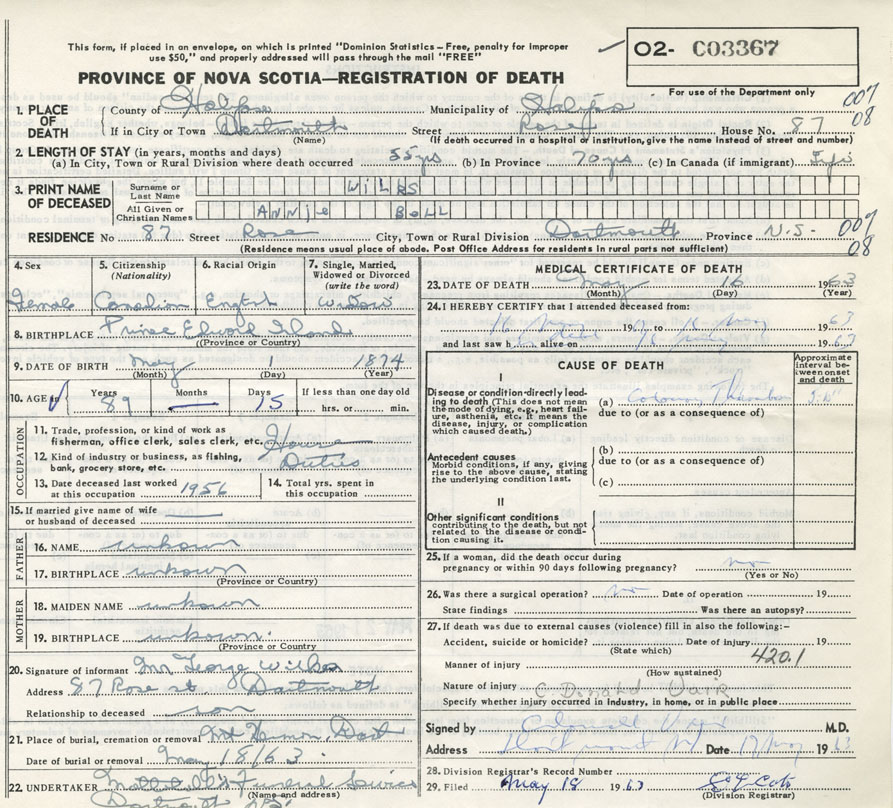 This form, if placed in an envelope, on which is printed "Dominion Statistics – Free, penalty for improper
use $50," and properly addressed will pass through the mail "FREE"
O2- C03367
PROVINCE OF NOVA SCOTIA—REGISTRATION OF DEATH
For use of the Department only
1. PLACE OF DEATH
County of Halifax Municipality of Halifax 007
If in City or Town Dartmouth Street Rose House No. 87 08
(Name) (If death occurred in a hospital or institution, give the name instead of street and number)
2. LENGTH OF STAY (in years, months and days)
(a) In City, Town or Rural Division where death occurred 55 yrs (b) In Province 70 yrs (c) In Canada (if immigrant)
3. PRINT NAME OF DECEASED
Surname or Last Name
All Given or Christian Names ANNie Bell
RESIDENCE No 87 Street Rose City, Town or Rural Division Dartmouth Province N.S. 007
(Residence means usual place of abode. Post Office Address for residents in rural parts not sufficient) 08
4. Sex
Female
5. Citizenship (Nationality)
6. Racial Origin
7. Single, Married, Widowed or Divorced (write the word)
Widow
8. BIRTHPLACE Prince Edward Island
(Province or Country)
9. DATE OF BIRTH May 1 1874
(Month) (Day) (Year)
10. AGE in Years Months Days If less than one day old
89 — 15 hrs. or min.
OCCUPATION
11. Trade, profession, or kind of work as fisherman, office clerk, sales clerk, etc. Home
12. Kind of industry or business, as fishing, bank, grocery store, etc. Duties
13. Date deceased last worked at this occupation 1956
14. Total yrs. spent in this occupation
15. If married give name of wife or husband of deceased
FATHER
16. NAME unkown
17. BIRTHPLACE unkown
(Province or Country)
MOTHER
18. MAIDEN NAME unkown
19. BIRTHPLACE unkown.
(Province or Country)
20. Signature of informant Mr George
Address 87 Rose st Dartmouth
Relationship to deceased son
21. Place of burial, cremation or removal Mt Hermon, Dart
Date of burial or removal May 18/63
22. UNDERTAKER Funeral Service
(Name and address)
Dartmouth NS
MEDICAL CERTIFICATE OF DEATH
23. DATE OF DEATH May 16 1963
(Month) (Day) (Year)
24. I HEREBY CERTIFY that I attended deceased from
16 May 19 to 16 May 63
and last saw h alive on 16 19 63
CAUSE OF DEATH
Approximate interval between onset and death
I
Disease or condition directly leading to death (This does not mean the mode of dying, e.g., heart failure, asthenia, etc. It means the disease, injury, or complication which caused death.)
(a) Coronary
due to (or as a consequence of)
Antecedent causes
Morbid conditions, if any, giving rise to the above cause, stating the underlying condition last.
(b)
due to (or as a consequence of)
(c)
II
Other significant conditions contributing to the death, but not related to the disease or condition causing it.
25. If a woman, did the death occur during pregnancy or within 90 days following pregnancy? no
(Yes or No)
26. Was there a surgical operation? no Date of operation 19
State findings Was there an autopsy?
27. If death was due to external causes (violence) fill in also the following:–
Accident, suicide or homicide? Date of injury 19
(State which)
Manner of injury 420.1
(How sustained)
Nature of injury
C Donald
Specify whether injury occurred in Industry, in home, or in public place
Signed by M.D.
Address Date 17 May 1963
28. Division Registrar's Record Number
29. Filed May 18 1963
(Division Registrar)